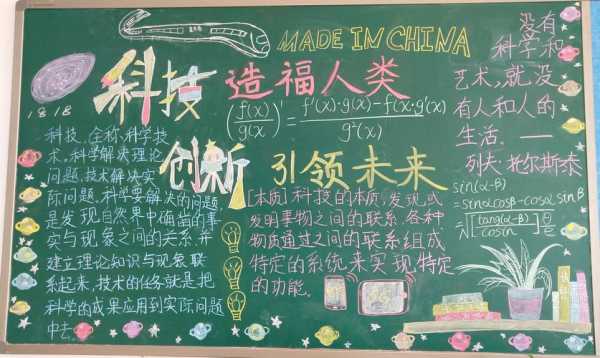 MADE IN CHINA
科技
造福人类
创新
引领未来
没有
科学和
艺术,就没
有人和人的
生活.——
列夫·托尔斯泰
(f(x)/g(x))'=(f'(x)·g(x)-f(x)·g'(x))/g²(x)
1818
科技,全称科学技
术,科学解决理论
问题,技术解决实
际问题.科学要解决的问题
是发现自然界中确凿的事
实与现象之间的关系,并
建立理论知识与现象联
系起来,技术的任务就是把
科学的成果应用到实际问题
中去.
[本质]科技的本质:发现或
发明事物之间的联系,各种
物质通过之间的联系组成
特定的系统来实现特定
的功能.
sin(α-β)
=sinαcosβ-cosα,sinβ